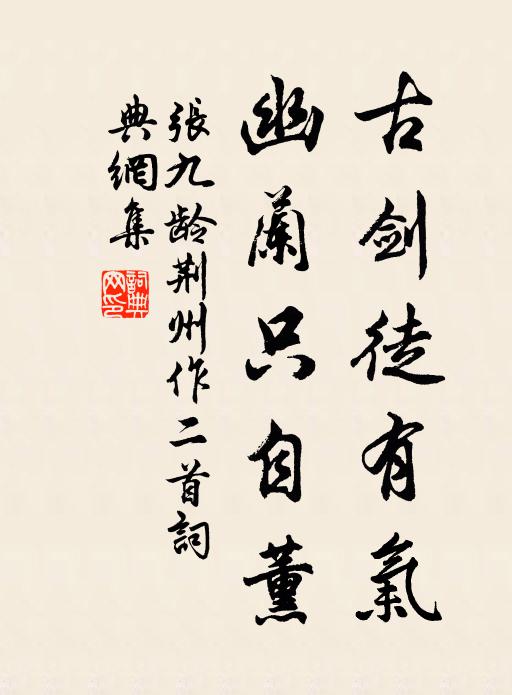 古剑徒有氣
幽蘭只自薰
張九龄荆州作二首詞
典網集
詞典
网印